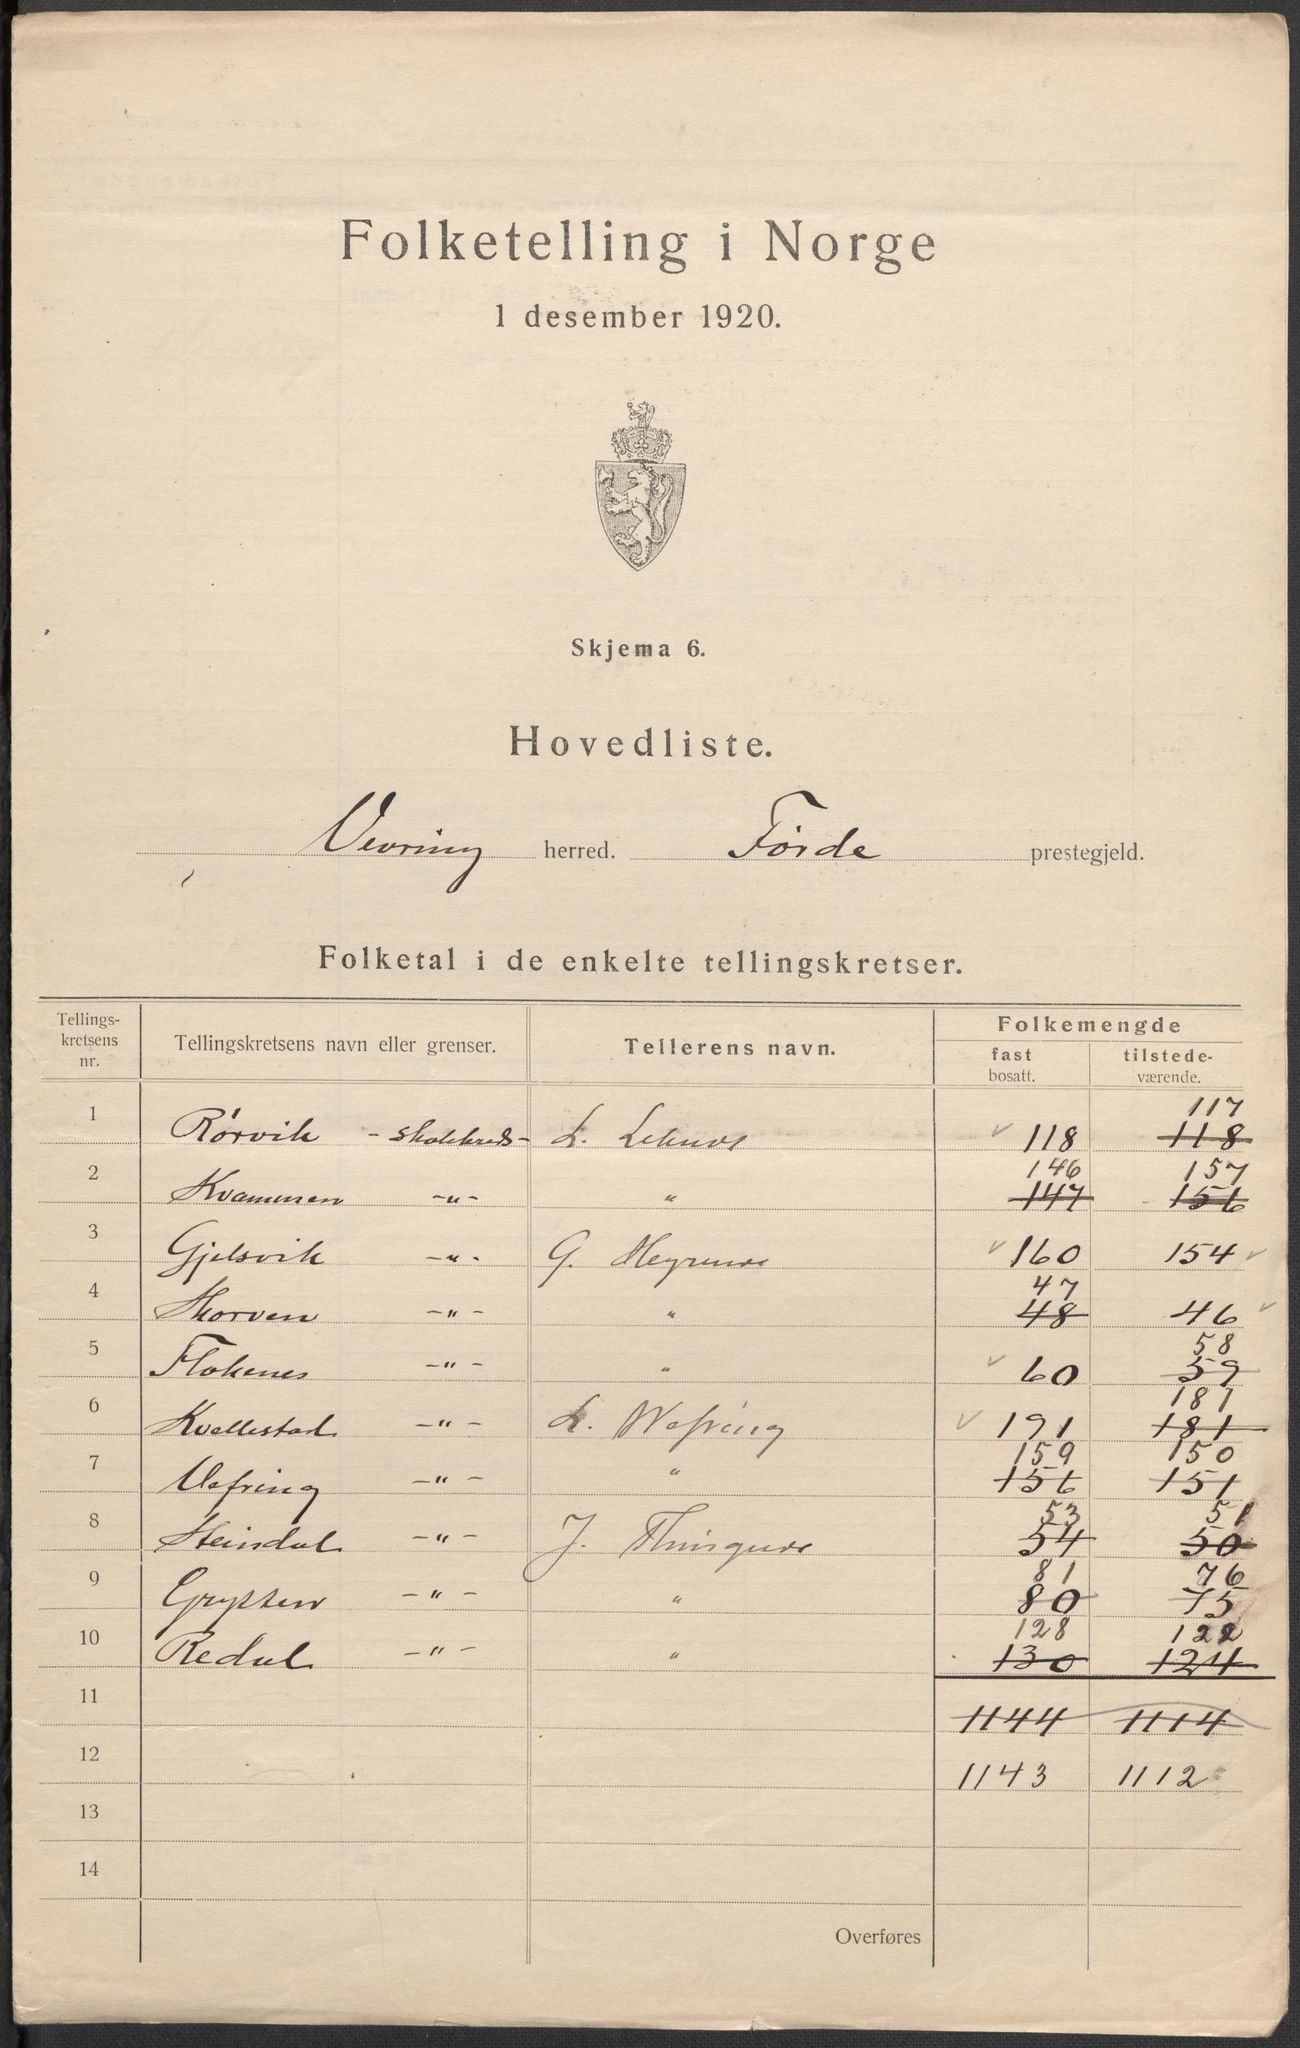 Folketelling i Norge
1 desember 1920.
Skjema 6.
Hovedliste.
Vevring herred. Førde prestegjeld.
Folketal i de enkelte tellingskretser.
Tellings-
kretsens
nr.
Tellingskretsens navn eller grenser.
Tellerens navn.
Folkemengde
fast
bosatt.
tilstede-
værende.
117
1 Rørvik - skolekreds - L. 118 118
146 157
2 Kvammen -"- " 147 156
3 Gjelsvik -"- G. 160 154
47
4 Skorven -"- " 48 46
58
5 Flokenes -"- " 60 59
181
6 Kvellestad -"- L. Wefring 191 181
159 150
7 Vefring -"- " 156 151
53 51
8 Steindal -"- J. 54 50
81 76
9 Grytten -"- " 80 75
128 122
10 Redal -"- " 130 124
11 1144 1114
12 1143 1112
13
14
Overføres